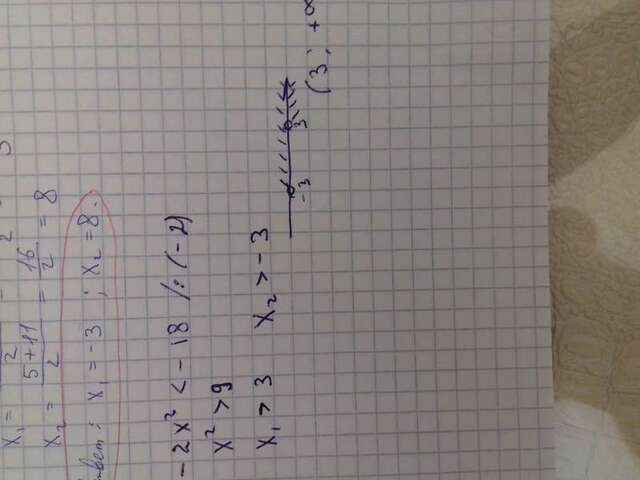 x₁ = 2 = 2 3
x₂ = (5+11)/2 = 16/2 = 8
x₁ = -3 ; x₂ = 8.
-2x² < -18 /:(-2)
x² > 9
x₁ > 3 x₂ > -3
-3 3
(3; +∞